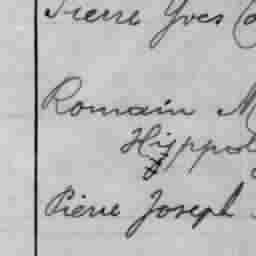 Pierre Yves
Romain
Hippol
Pierre Joseph